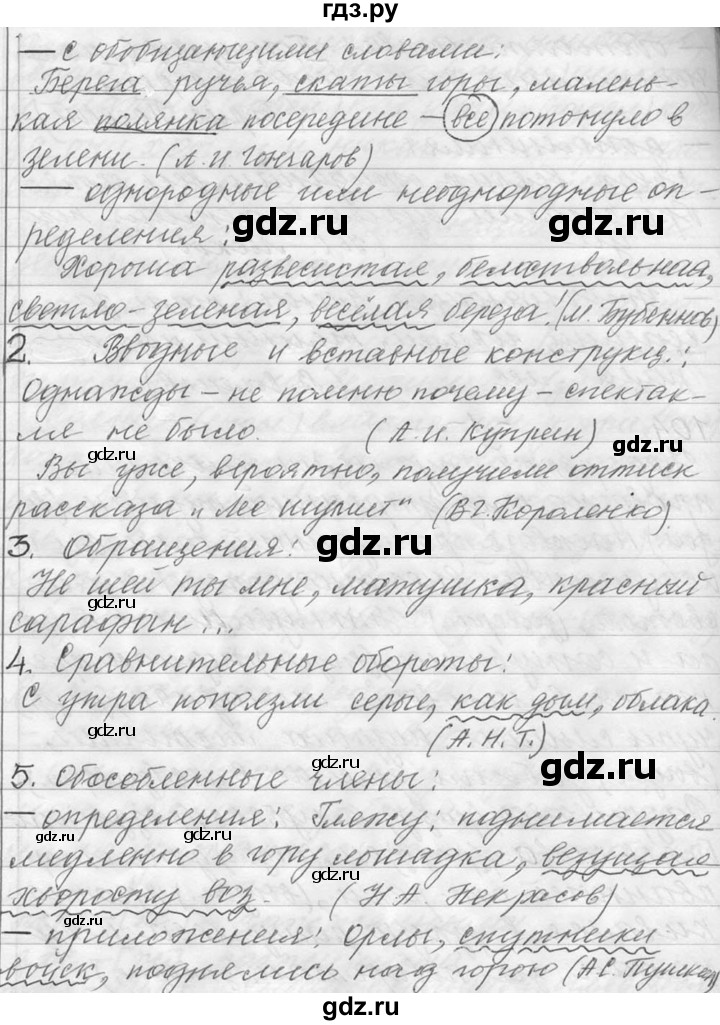 гдз.ру
— с обобщающими словами:
Берега ручья, скаты горы, малень-
кая полянка посередине – все потонуло в
зелени. (А. И. Гончаров)
— однородные или неоднородные оп-
ределения:
gdz.ru gdz.ru
Хороша развесистая, белоствольная,
светло-зеленая, весёлая береза! (М. Бубеннов)
2. Вводные и вставные конструкц.:
Однажды – не помню почему – спектак-
ля не было. (А. И. Куприн)
gdz.ru gdz.ru
Вы уже, вероятно, получили оттиск
рассказа „Лес шумит" (В.Г. Короленко)
3. Обращения:
gdz.ru
Не шей ты мне, матушка, красный
gdz.ru
сарафан...
4. Сравнительные обороты:
С утра поползли серые, как дым, облака.
gdz.ru
(А. Н. Т.)
gdz.ru gdz.ru
5. Обособленные члены:
— определения: Гляжу: поднимается
gdz.ru gdz.ru
медленно в гору лошадка, везущая
gdz.ru
хворосту воз. (Н. А. Некрасов)
— приложения: Орлы, спутники
gdz.ru
войск, поднялись над горою (А.С. Пушкин)
gdz.ru
гдз.ру